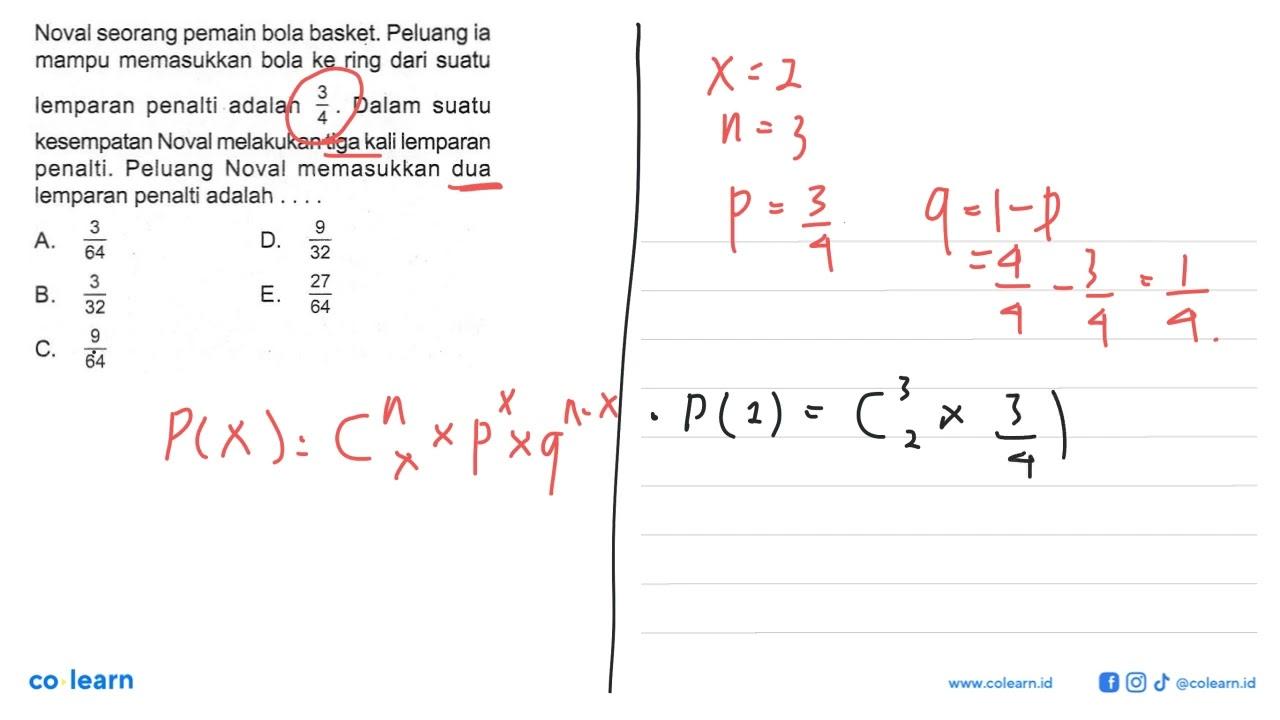 Noval seorang pemain bola basket. Peluang ia
mampu memasukkan bola ke ring dari suatu
lemparan penalti adalah 3/4. Dalam suatu
kesempatan Noval melakukan tiga kali lemparan
penalti. Peluang Noval memasukkan dua
lemparan penalti adalah . . . .
A. 3/64
B. 3/32
C. 9/64
D. 9/32
E. 27/64
P(x) = C^n_x × p^x × q^(n-x)
x = 2
n = 3
p = 3/4
q = 1 - p
= 4/4 - 3/4 = 1/4.
. P(2) = C^3_2 × 3/4)
co learn
www.colearn.id
@colearn.id